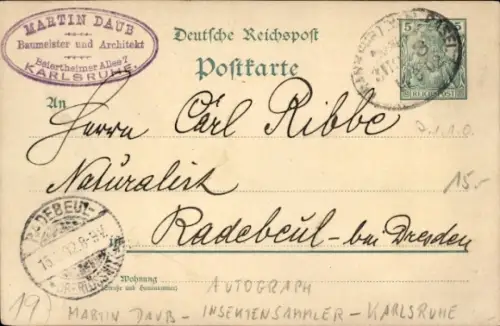 MARTIN DAUB
Baumeister und Architekt
Beiertheimer Allee 7
KARLSRUHE.
Deutsche Reichspost
Postkarte
5 5
REICHSPOST
An
Herrn Carl Ribbe
Naturalist
15.-
RADEBEUL
in Radebeul - bei Dresden
Wohnung
(Straße und Hausnummer)
19)
AUTOGRAPH
MARTIN DAUB - INSEKTENSAMMLER - KARLSRUHE